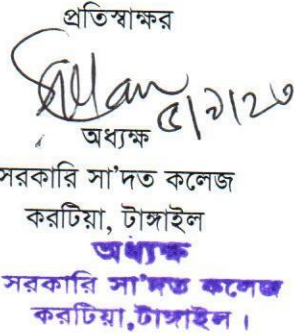 প্রতিস্বাক্ষর
অধ্যক্ষ
সরকারি সা'দত কলেজ
করটিয়া, টাঙ্গাইল
অধ্যক্ষ
সরকারি সা'দত কলেজ
করটিয়া,টাঙ্গাইল।